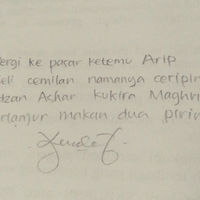 ergi ke pasar ketemu Arip
eli cemilan namanya ceripin
dzan Ashar kukira Maghri
erlanjur makan dua pirin